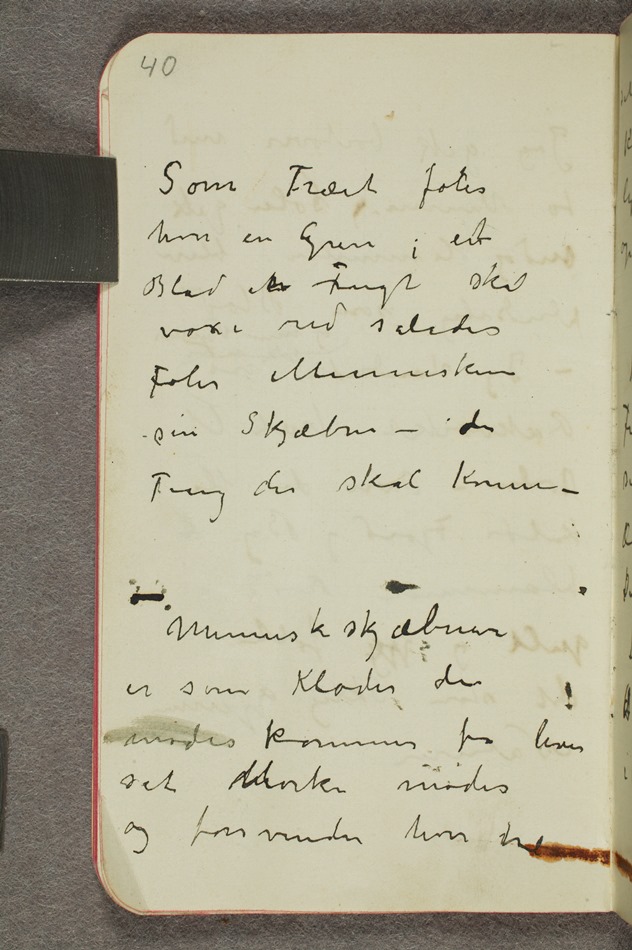 40
Som Træet føles
hvor en Gren i et
Blad en Frugt skal
voxe ud således
Føler Mennesken
sin Skjæbne – de
Ting der skal komme –
– Menneskeskjæbner
er som Kloder der
mødes kommer fra hver
sit Mørke mødes
og forsvinder hver